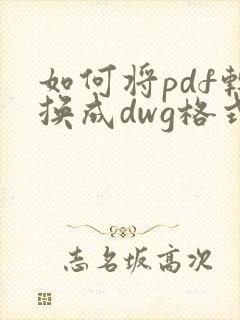 如何将pdf转
换成dwg格式
志名坂高次